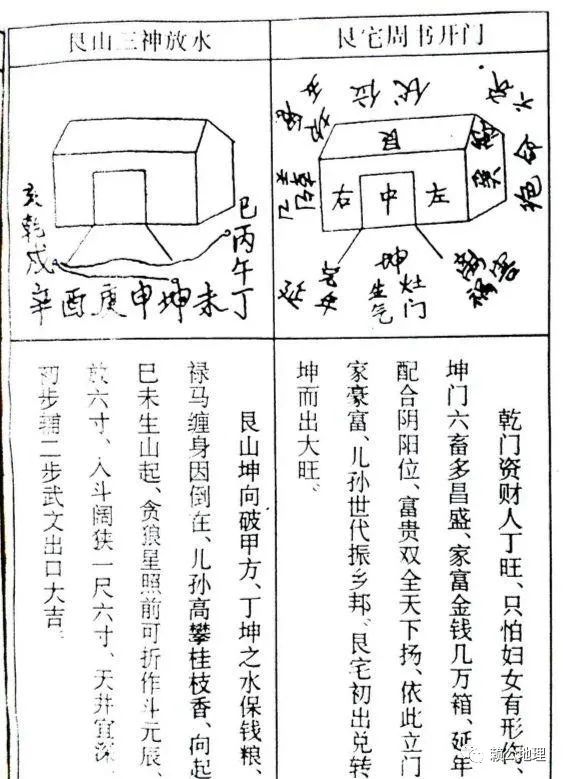 艮宅周书开门
伏位
六
艮
右 中 左
坤
生气
灶门
祸害
绝命
乾门资财人丁旺、只怕妇女有形伤、
坤门六畜多昌盛、家富金钱几万箱、延年
配合阴阳位、富贵双全天下扬、依此立门
家豪富、儿孙世代振乡邦、艮宅初出兑转
坤而出大旺。
艮山三神放水
亥乾戌
辛酉庚申坤未丁
巳丙午
艮山坤向破甲方、丁坤之水保钱粮、
禄马缠身因倒在、儿孙高攀桂枝香、向起
巳未生山起、贪狼星照前可折作斗元辰、
放六寸、入斗阔狭一尺六寸、天井宜深
初步辅二步武文出口大吉。
赖公地理